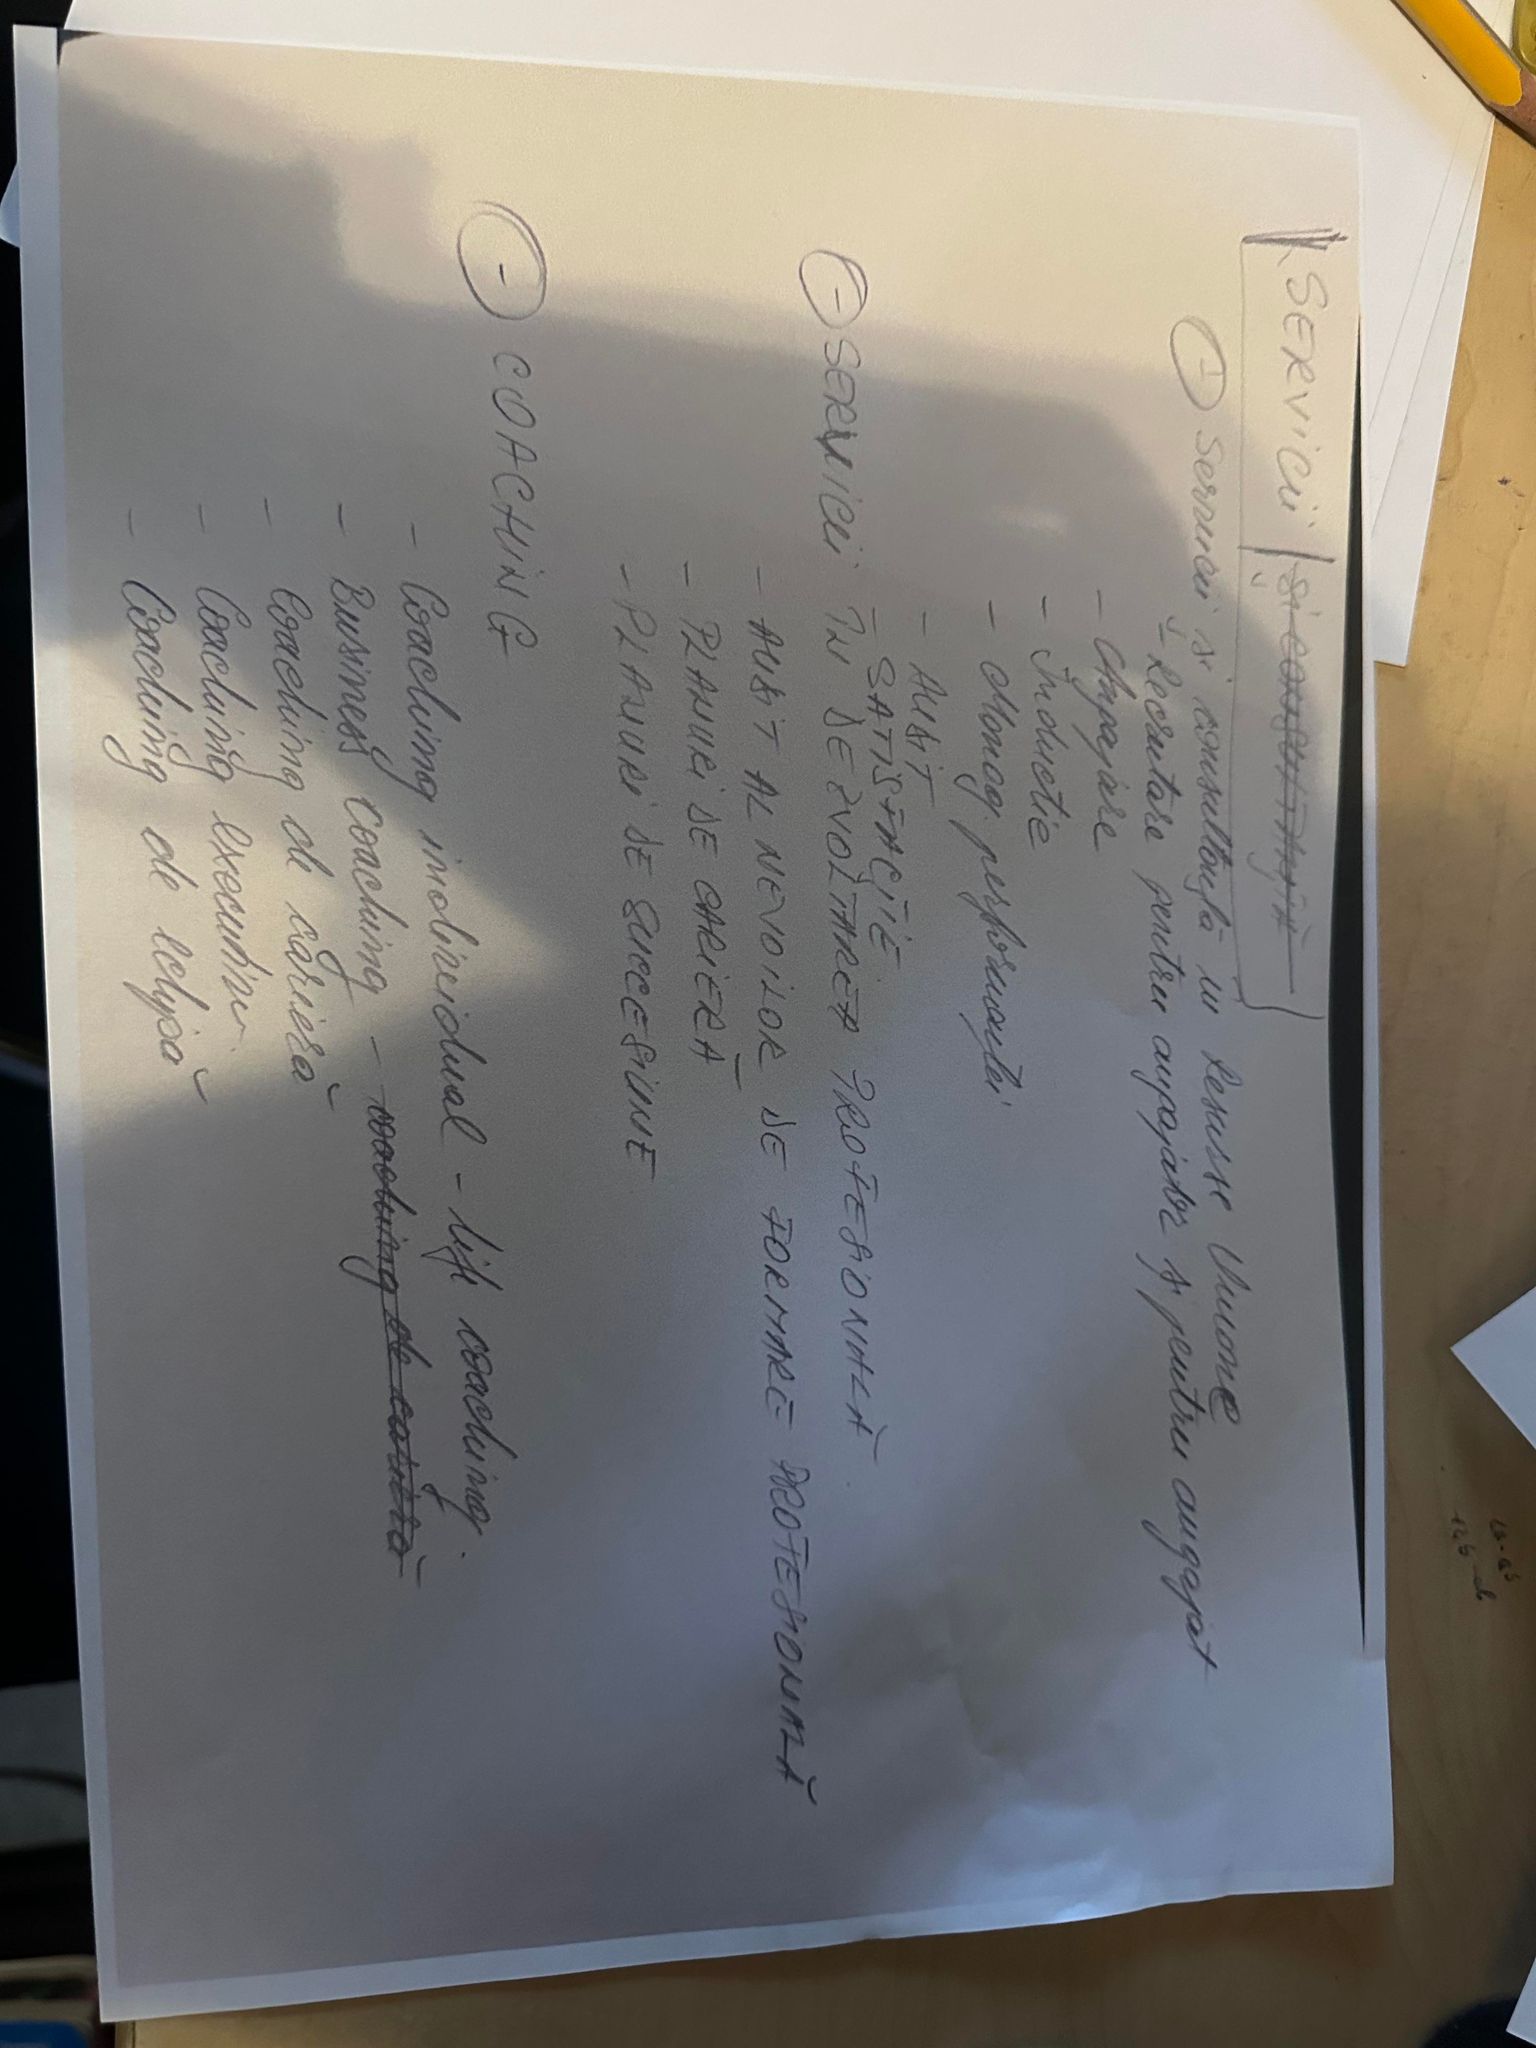 SERVICII și CONSULTANȚĂ
Servicii și consultanță în Resurse Umane
- Recrutare pentru angajator și pentru angajat
- Angajare
- Inductie
- Manag. performanței
- AUDIT
- SATISFACȚIE
- SERVICII ÎN DEZVOLTAREA PROFESIONALĂ
- AUDIT AL NEVOILOR DE FORMARE PROFESIONALĂ
- PLANURI DE CARIERĂ
- PLANURI DE SUCCESIUNE
- COACHING
- Coaching individual - life coaching.
- Business coaching - coaching de carieră
- Coaching de carieră
- Coaching executiv
- Coaching de echipă